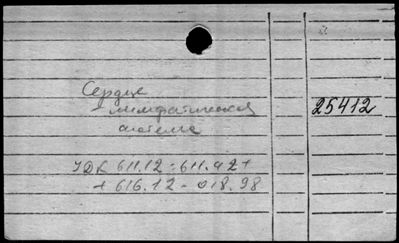 Сердце
лимфатическая
система
25412
УДК 611.12 - 611.42 +
+ 616.12 - 018.98